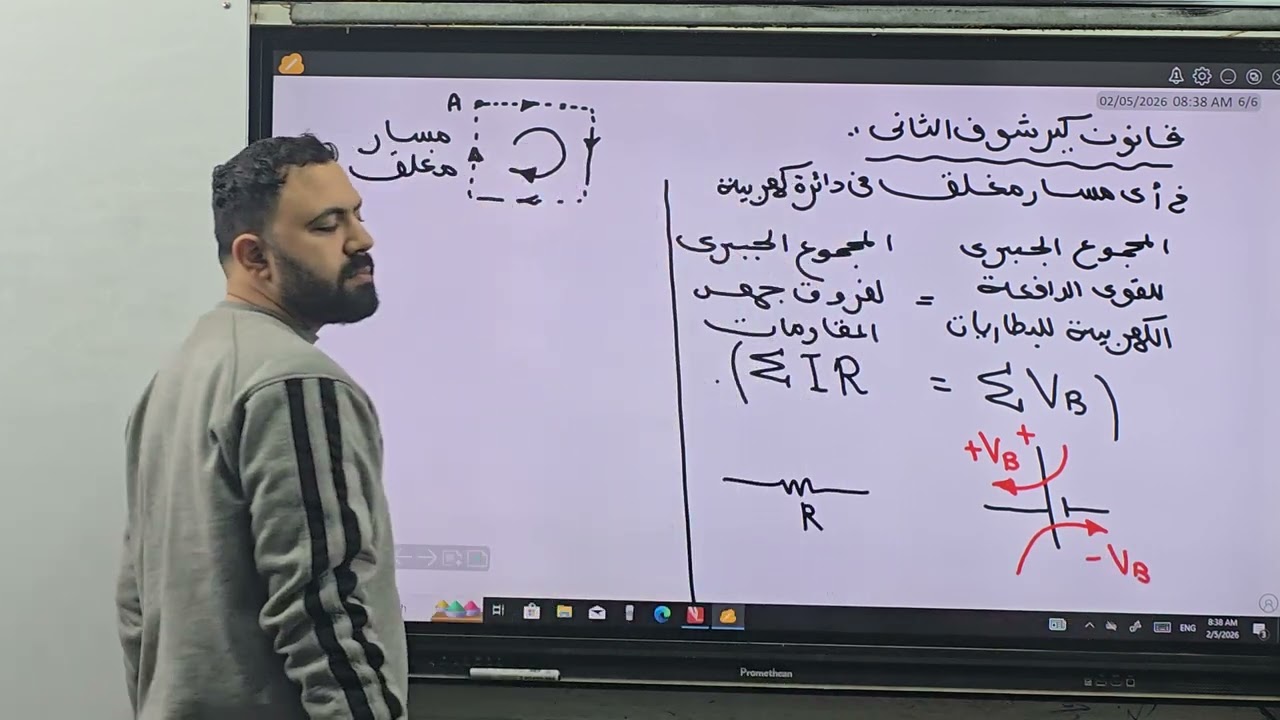 02/05/2026 08:38 AM 6/6
قانون كيرشوف الثانى :.
فى أى مسار مغلق فى دائرة كهربية
المجموع الجبرى المجموع الجبرى
للقوى الدافعة = لفروق جهد
الكهربية للبطاريات المقاومات
(ΣVB = ΣIR).
+VB +
-VB
R
A
مسار
مغلق
ENG 8:38 AM
2/5/2026
Promethean